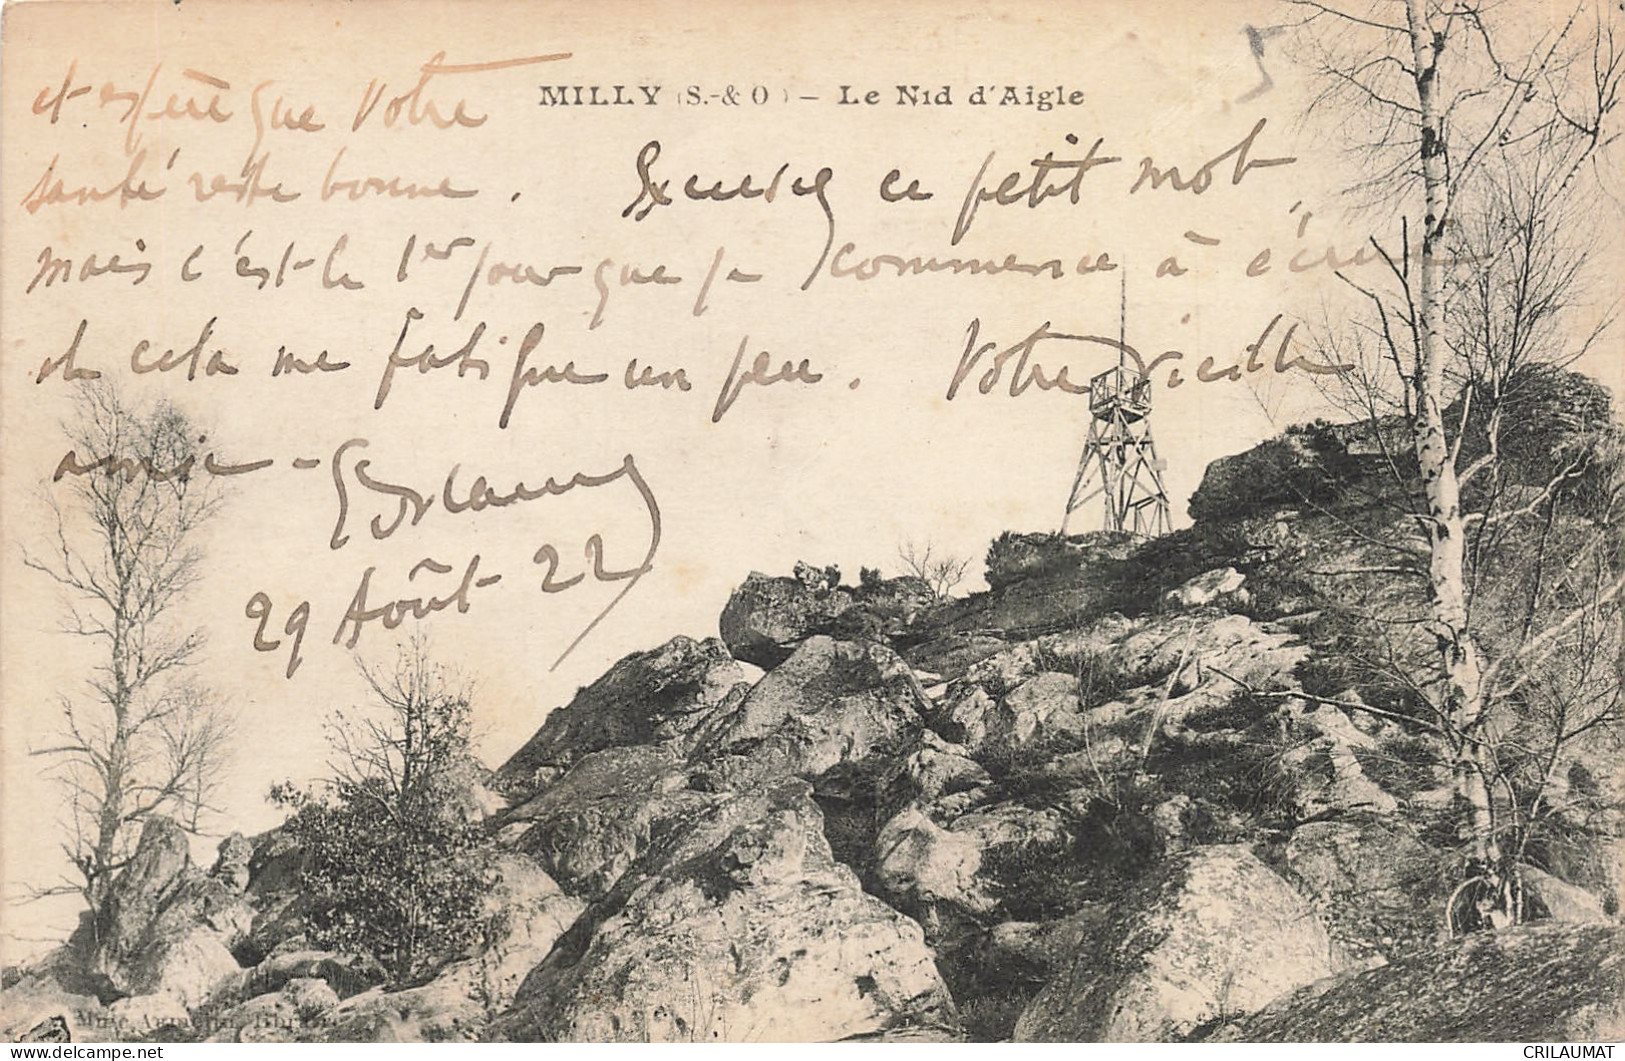 MILLY (S.-& O.) – Le Nid d'Aigle
5
et espère que Votre
santé reste bonne. Excusez ce petit mot,
mais c'est le 1er jour que je commence à écrire
et cela me fatigue un peu. Votre vieille
amie –
29 Août 22
CRILAUMAT